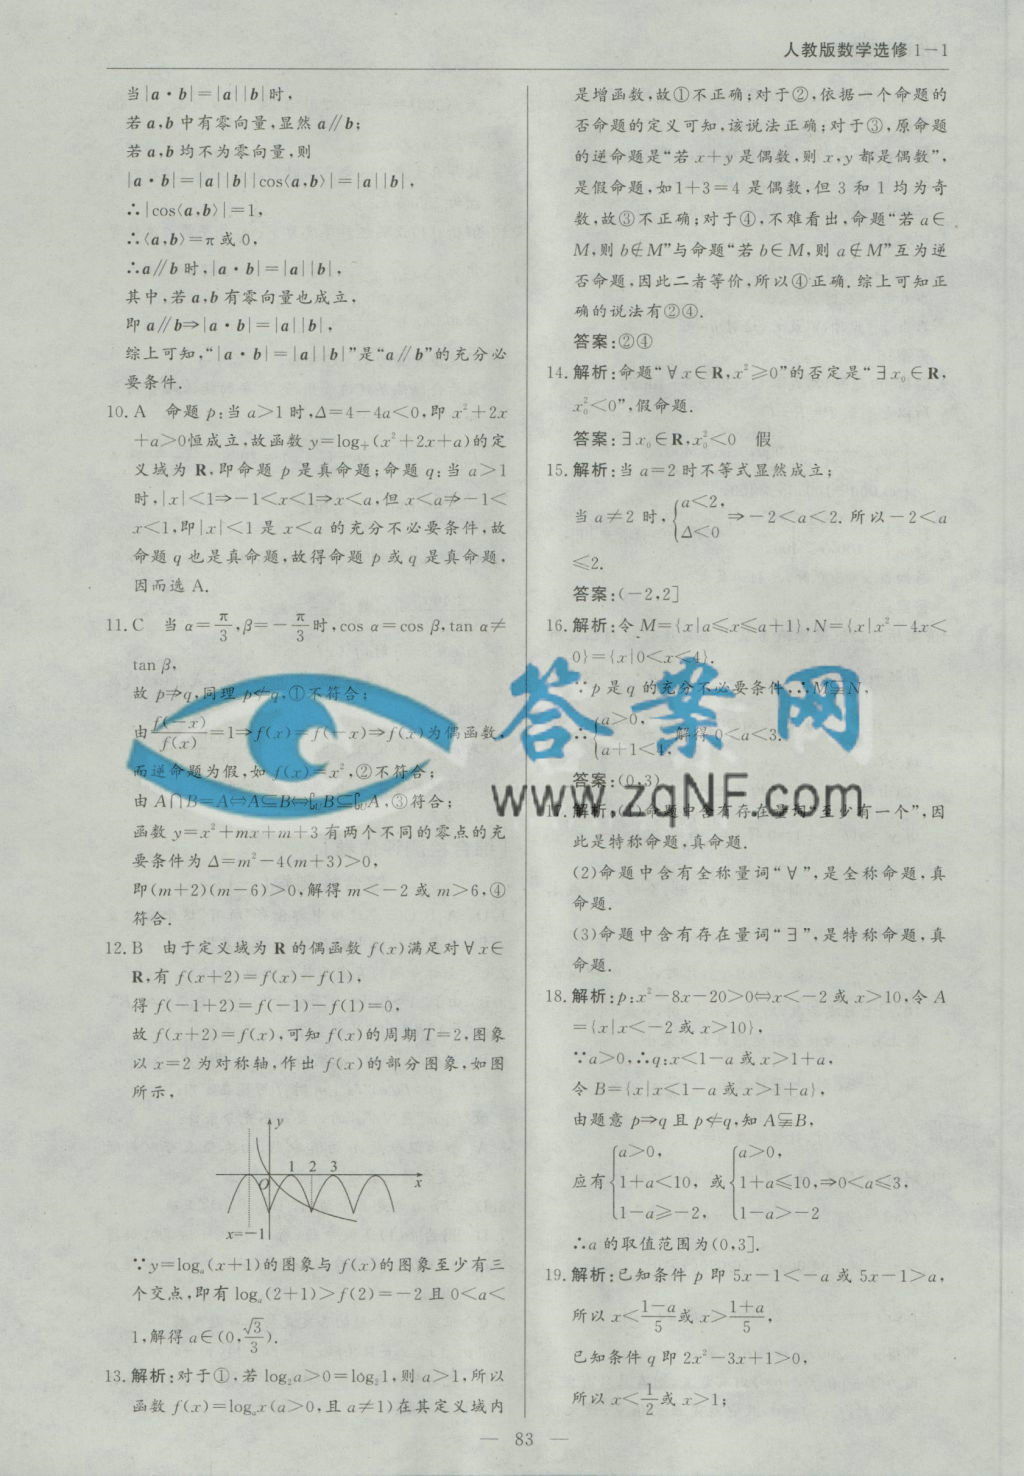 人教版数学选修 1-1
当|a·b|=|a||b|时,
若 a,b 中有零向量,显然 a∥b;
若 a,b 均不为零向量,则
|a·b|=|a||b||cos⟨a,b⟩|=|a||b|,
∴|cos⟨a,b⟩|=1,
∴⟨a,b⟩=π 或 0,
∴a∥b 时,|a·b|=|a||b|,
其中,若 a,b 有零向量也成立,
即 a∥b⇒|a·b|=|a||b|,
综上可知,“|a·b|=|a||b|”是“a∥b”的充分必
要条件.
10. A 命题 p:当 a>1 时,Δ=4-4a<0,即 x²+2x
+a>0恒成立,故函数 y=log (x²+2x+a)的定
义域为 R,即命题 p 是真命题;命题 q:当 a>1
时,|x|<1⇒-1<x<1⇒x<a,但 x<a⇏-1<
x<1,即|x|<1 是 x<a 的充分不必要条件,故
命题 q 也是真命题,故得命题 p 或 q 是真命题,
因而选 A.
11. C 当 α=π/3,β=-π/3时,cos α=cos β,tan α≠
tan β,
故 p⇏q,同理 p⇍q,①不符合;
由f(-x)/f(x)=1⇒f(x)=f(-x)⇒f(x)为偶函数,
而逆命题为假,如 f(x)=x²,②不符合;
由 A∩B=A⇔A⊆B⇔∁UB⊆∁UA,③符合;
函数 y=x²+mx+m+3 有两个不同的零点的充
要条件为 Δ=m²-4(m+3)>0,
即(m+2)(m-6)>0,解得 m<-2 或 m>6,④
符合.
12. B 由于定义域为 R 的偶函数 f(x)满足对∀x∈
R,有 f(x+2)=f(x)-f(1),
得 f(-1+2)=f(-1)-f(1)=0,
故 f(x+2)=f(x),可知 f(x)的周期 T=2,图象
以 x=2 为对称轴,作出 f(x)的部分图象,如图
所示,
y
1 2 3
O x
x=-1
∵y=logₐ(x+1)的图象与 f(x)的图象至少有三
个交点,即有 logₐ(2+1)>f(2)=-2 且 0<a<
1,解得 a∈(0,√3/3).
13. 解析:对于①,若 log₂a>0=log₂1,则 a>1,所以
函数 f(x)=logₐx(a>0,且 a≠1)在其定义域内
是增函数,故①不正确;对于②,依据一个命题的
否命题的定义可知,该说法正确;对于③,原命题
的逆命题是“若 x+y 是偶数,则 x,y 都是偶数”,
是假命题,如1+3=4 是偶数,但 3 和 1 均为奇
数,故③不正确;对于④,不难看出,命题“若 a∈
M,则 b∉M”与命题“若 b∈M,则 a∉M”互为逆
否命题,因此二者等价,所以④正确.综上可知正
确的说法有②④.
答案:②④
14. 解析:命题“∀x∈R,x²≥0”的否定是“∃x₀∈R,
x₀²<0”,假命题.
答案:∃x₀∈R,x₀²<0 假
15. 解析:当 a=2 时不等式显然成立;
当 a≠2 时,{a<2,Δ<0⇒-2<a<2.所以-2<a
≤2.
答案:(-2,2]
16. 解析:令 M={x|a≤x≤a+1},N={x|x²-4x<
0}={x|0<x<4}.
∵p 是 q 的充分不必要条件,∴M⫋N,
∴{a>0,a+1<4, 解得 0<a<3.
答案:(0,3)
答案网
www.zqNF.com
解析:(1)命题中含有存在量词“至少有一个”,因
此是特称命题,真命题.
(2)命题中含有全称量词“∀”,是全称命题,真
命题.
(3)命题中含有存在量词“∃”,是特称命题,真
命题.
18. 解析:p:x²-8x-20>0⇔x<-2 或 x>10,令 A
={x|x<-2 或 x>10},
∵a>0,∴q:x<1-a 或 x>1+a,
令 B={x|x<1-a 或 x>1+a},
由题意 p⇒q 且 p⇍q,知 A⫋B,
应有{a>0,1+a<10,1-a≥-2, 或{a>0,1+a≤10,1-a>-2⇒0<a≤3,
∴a 的取值范围为(0,3].
19. 解析:已知条件 p 即 5x-1<-a 或 5x-1>a,
所以 x<(1-a)/5或 x>(1+a)/5,
已知条件 q 即 2x²-3x+1>0,
所以 x<1/2或 x>1;
— 83 —